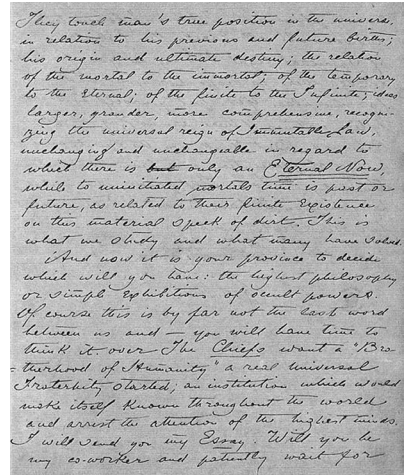 They touch man's true position in the universe,
in relation to his previous and future births;
his origin and ultimate destiny; the relation
of the mortal to the immortal; of the temporary
to the Eternal; of the finite to the Infinite; ideas
larger, grander, more comprehensive, recogni-
zing the universal reign of Immutable Law,
unchanging and unchangeable in regard to
which there is but only an Eternal Now,
while to uninitiated mortals time is past or
future, as related to their finite existence
on this material speck of dirt. This is
what we study and what many have solved.
And now it is your province to decide
which will you have: the highest philosophy
or simple exhibitions of occult powers.
Of course this is by far not the last word
between us and — you will have time to
think it over. The Chiefs want a "Bro-
-therhood of Humanity," a real Universal
Fraternity started; an institution which would
make itself known throughout the world
and arrest the attention of the highest minds.
I will send you my Essay. Will you be
my co-worker and patiently wait for